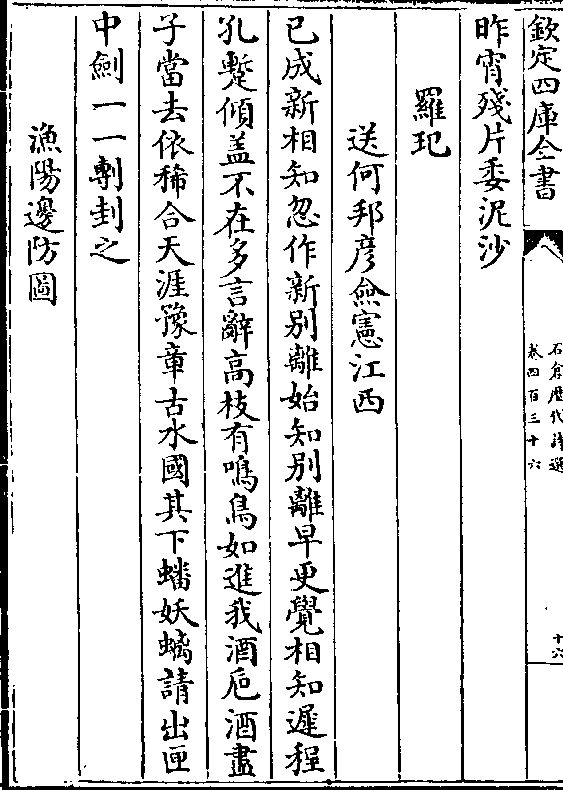 欽定四庫全書
石倉歷代詩選
卷四百三十六
十六
昨宵殘片委泥沙
羅玘
送何邦彦僉憲江西
已成新相知忽作新别離始知别離早更覺相知遲程
孔蹔傾盖不在多言辭髙枝有鳴鳥如進我酒巵酒盡
子當去依稀合天涯豫章古水國其下蟠妖螭請出匣
中劍一一剸刲之
漁陽邊防圖